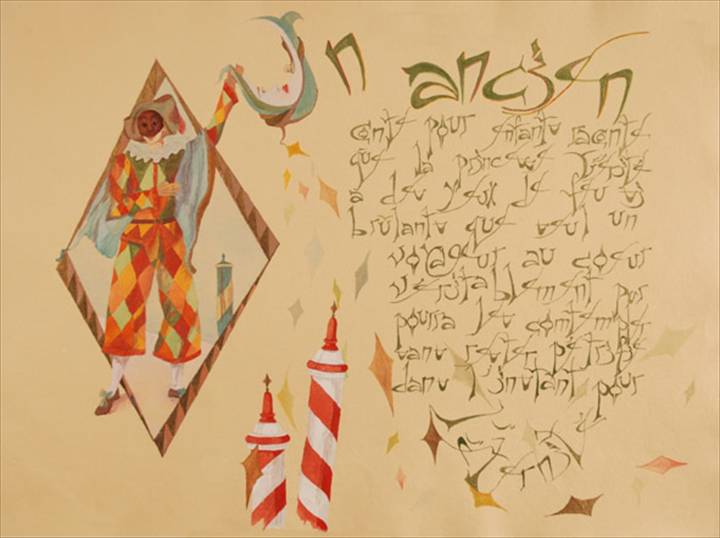 Un ancien
conte pour enfants raconte
que la princesse Vérité
a des yeux de feu si
brûlants que seul un
voyageur au coeur
véritablement pur
pourra les contempler
sans rester pétrifié
dans l'instant pour
l'Éternité